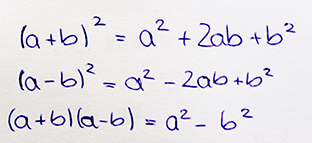 (a+b)² = a² + 2ab + b²
(a-b)² = a² - 2ab + b²
(a+b)(a-b) = a² - b²